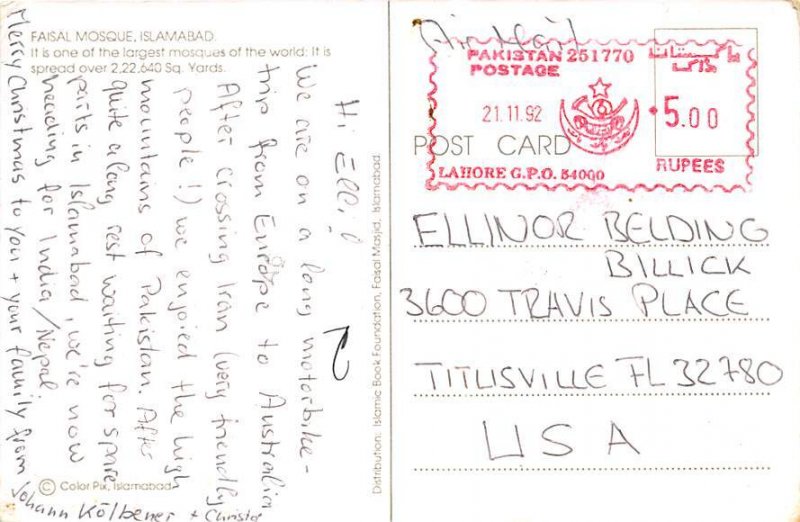 FAISAL MOSQUE, ISLAMABAD.
It is one of the largest mosques of the world: It is
spread over 2,22,640 Sq. Yards.
Hi Elli!
We are on a long motorbike-
trip from Europe to Australia
After crossing Iran (very friendly
people!) we enjoied the high
mountains of Pakistan. After
quite a long rest waiting for spare
parts in Islamabad, we're now
heading for India/Nepal
Merry Christmas to you + your family from
Johann Kölbener + Christa
© Color Pix, Islamabad
Distribution: Islamic Book Foundation, Faisal Masjid, Islamabad.
Air Mail
PAKISTAN 251770
POSTAGE
پاکستان
21.11.92
5.00
POST CARD
RUPEES
LAHORE G.P.O. 54000
ELLINOR BELDING
BILLICK
3600 TRAVIS PLACE
TITLISVILLE FL 32780
USA